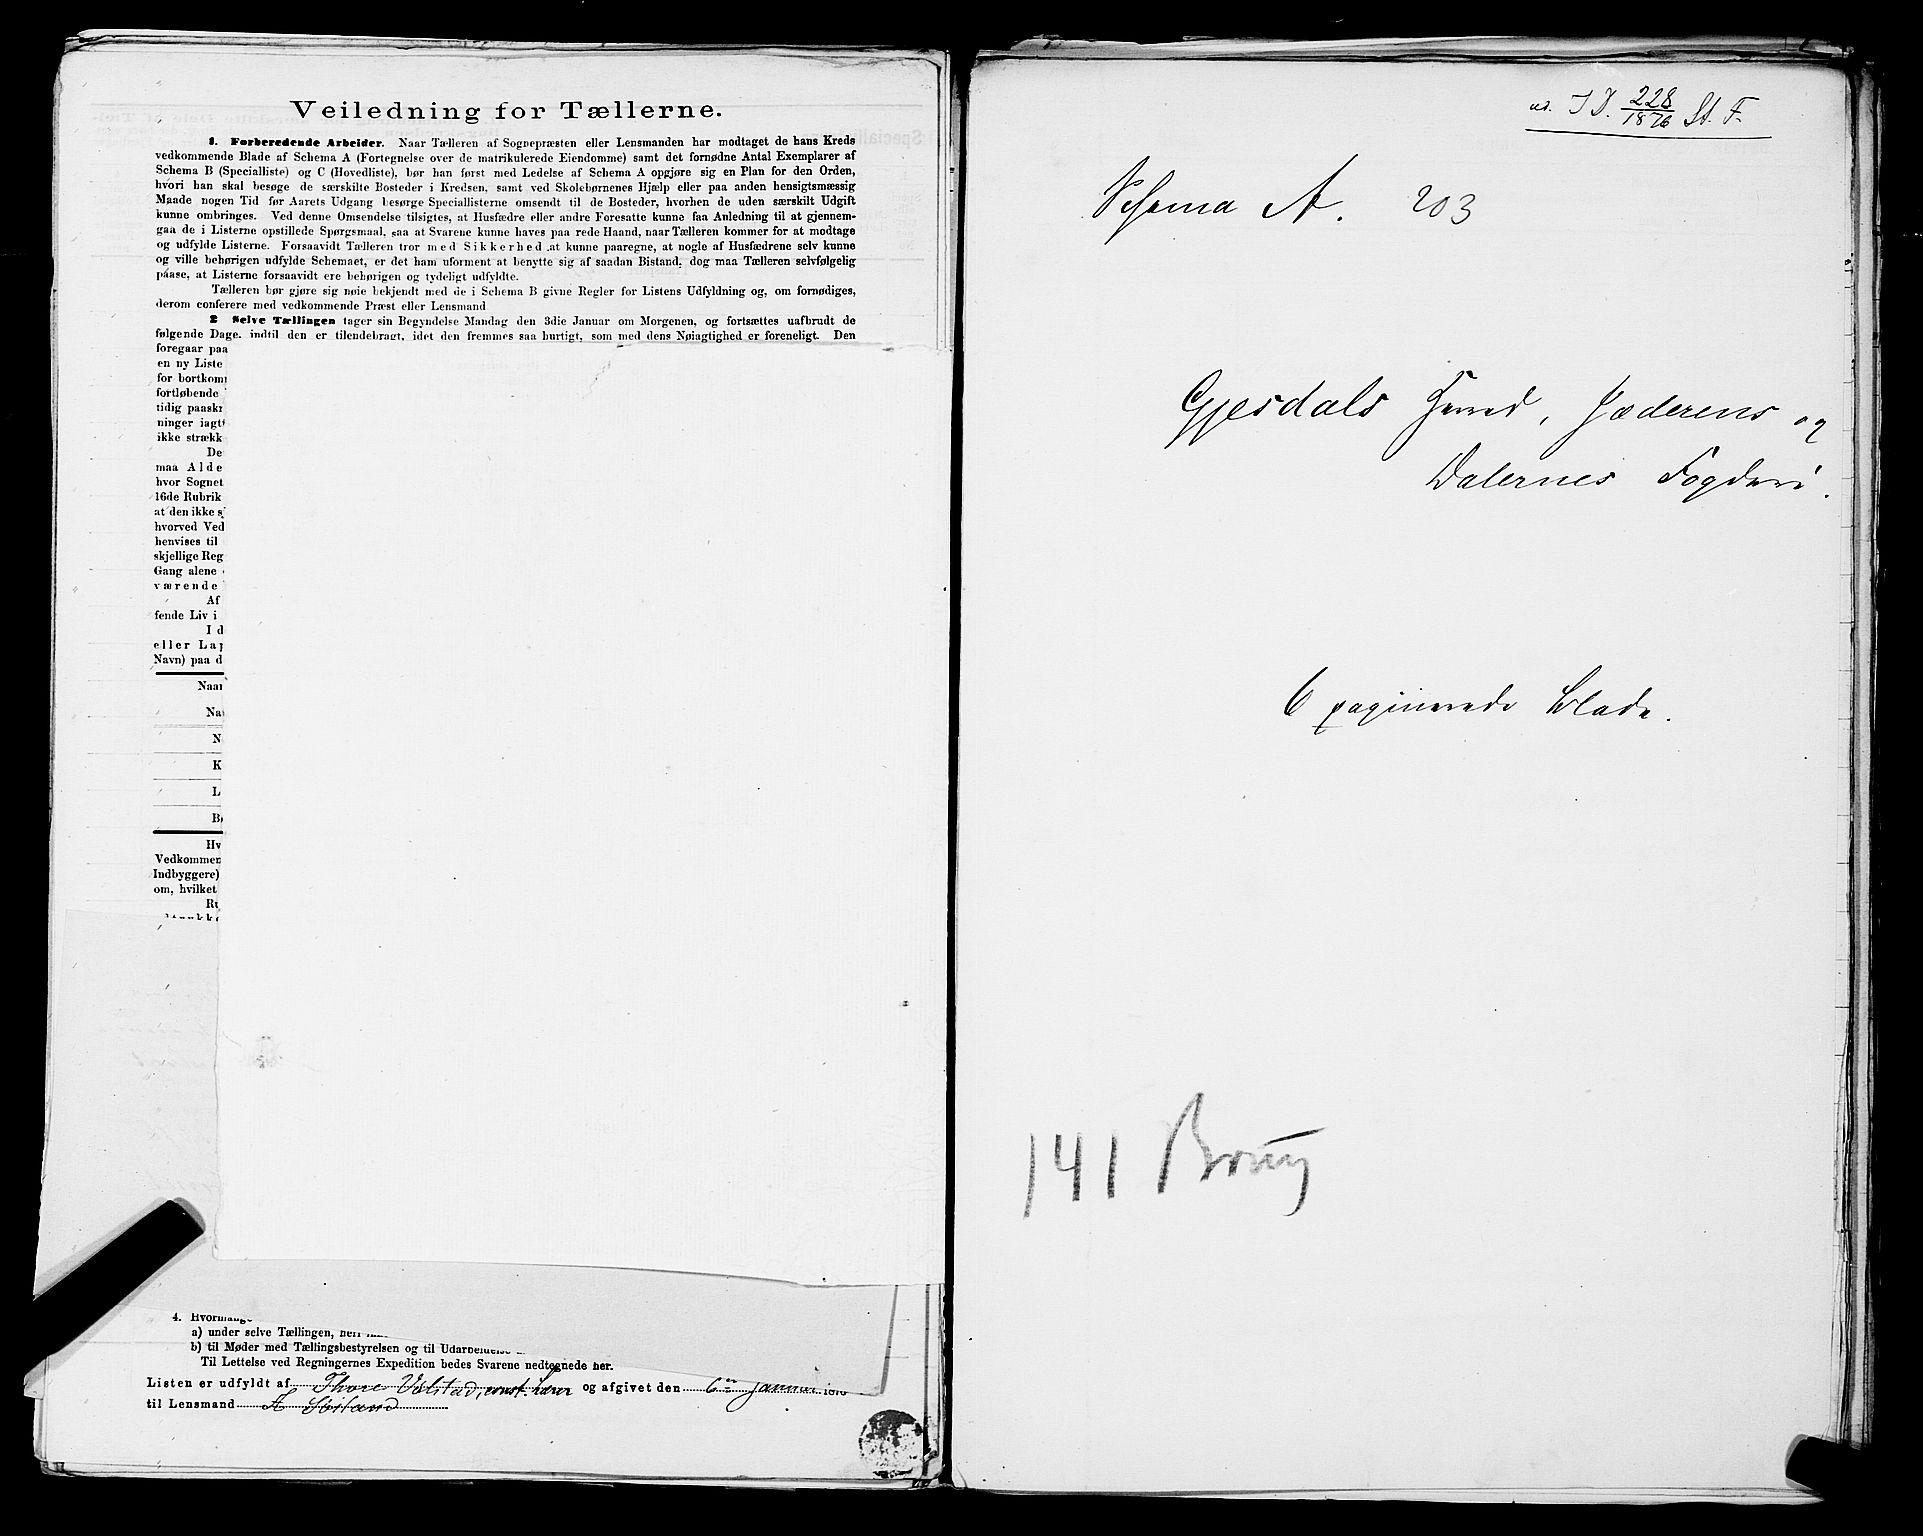 Veiledning for Tællerne.
1. Forberedende Arbeider. Naar Tælleren af Sognepræsten eller Lensmanden har modtaget de hans Kreds
vedkommende Blade af Schema A (Fortegnelse over de matrikulerede Eiendomme) samt det fornødne Antal Exemplarer af
Schema B (Specialliste) og C (Hovedliste), bør han først med Ledelse af Schema A opgjøre sig en Plan for den Orden,
hvori han skal besøge de særskilte Bosteder i Kredsen, samt ved Skolebørnenes Hjælp eller paa anden hensigtsmæssig
Maade nogen Tid før Aarets Udgang besørge Speciallisterne omsendt til de Bosteder, hvorhen de uden særskilt Udgift
kunne ombringes. Ved denne Omsendelse tilsigtes, at Husfædre eller andre Foresatte kunne faa Anledning til at gjennem-
gaa de i Listerne opstillede Spørgsmaal, saa at Svarene kunne haves paa rede Haand, naar Tælleren kommer for at modtage
og udfylde Listerne. Forsaavidt Tælleren tror med Sikkerhed at kunne paaregne, at nogle af Husfædrene selv kunne
og ville behørigen udfylde Schemaet, er det ham uforment at benytte sig af saadan Bistand, dog maa Tælleren selvfølgelig
paase, at Listerne forsaavidt ere behørigen og tydeligt udfyldte.
Tælleren bør gjøre sig nøie bekjendt med de i Schema B givne Regler for Listens Udfyldning og, om fornødiges,
derom conferere med vedkommende Præst eller Lensmand
2 Selve Tællingen tager sin Begyndelse Mandag den 3die Januar om Morgenen, og fortsættes uafbrudt de
følgende Dage, indtil den er tilendebragt, idet den fremmes saa hurtigt, som med dens Nøiagtighed er foreneligt. Den
foregaar paa
en ny Liste
for bortkom
fortløbende
tidig paaskr
ninger iagt
ikke strækk
De
maa Alde
hvor Sognet
16de Rubrik
at den ikke s
hvorved Ved
henvises til
skjellige Reg
Gang alene
værende
Af
fende Liv i
I d
eller Lap
Navn) paa d
Naar
Na
N
K
L
B
Hv
Vedkommen
Indbyggere)
om, hvilket
Ru
4. Hvormange
a) under selve Tællingen,
b) til Møder med Tællingsbestyrelsen og til Udarbeidelse
Til Lettelse ved Regningernes Expedition bedes Svarene nedtegnede her.
Listen er udfyldt af Thore Ulstad, const. Lærer og afgivet den 6te Januar 1876
til Lensmand
ad. J D. 228/1876 St. F.
Schema A. 203
Gjesdals Herred, Jæderens og
Dalernes Fogderi.
6 paginerede Blade.
141 Brug